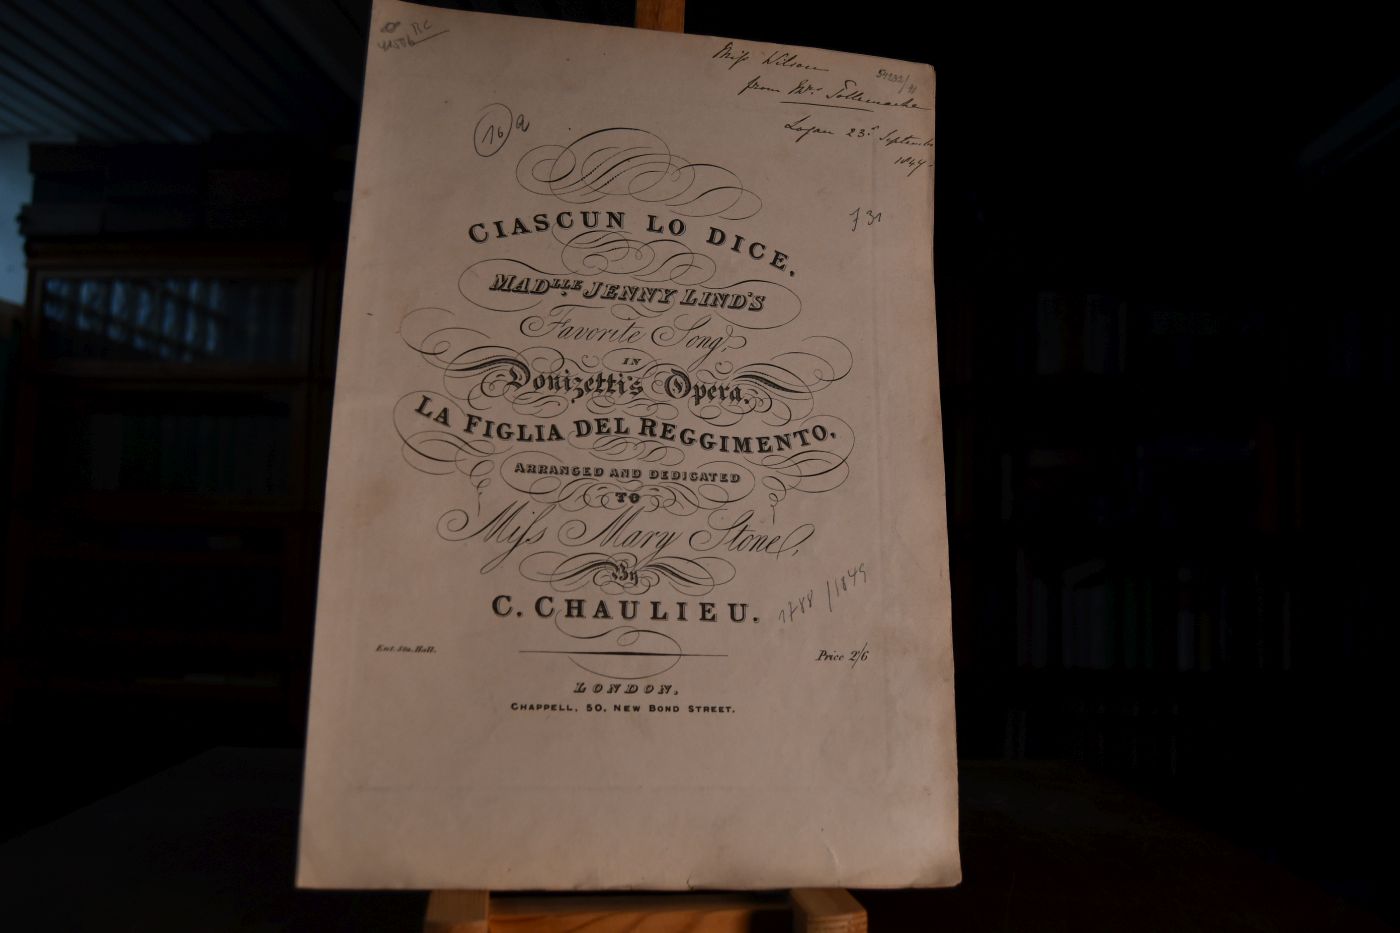 RC
41506
Miss Wilson
from Mrs Tollemache
Logan 23d September
1847.
16 a
731
CIASCUN LO DICE.
MADLLE. JENNY LIND'S
Favorite Song,
IN
Donizetti's Opera.
LA FIGLIA DEL REGGIMENTO.
ARRANGED AND DEDICATED
TO
Miss Mary Stone,
By
C. CHAULIEU.
1788/1849
Ent. Sta. Hall.
Price 2/6
LONDON,
CHAPPELL, 50, NEW BOND STREET.